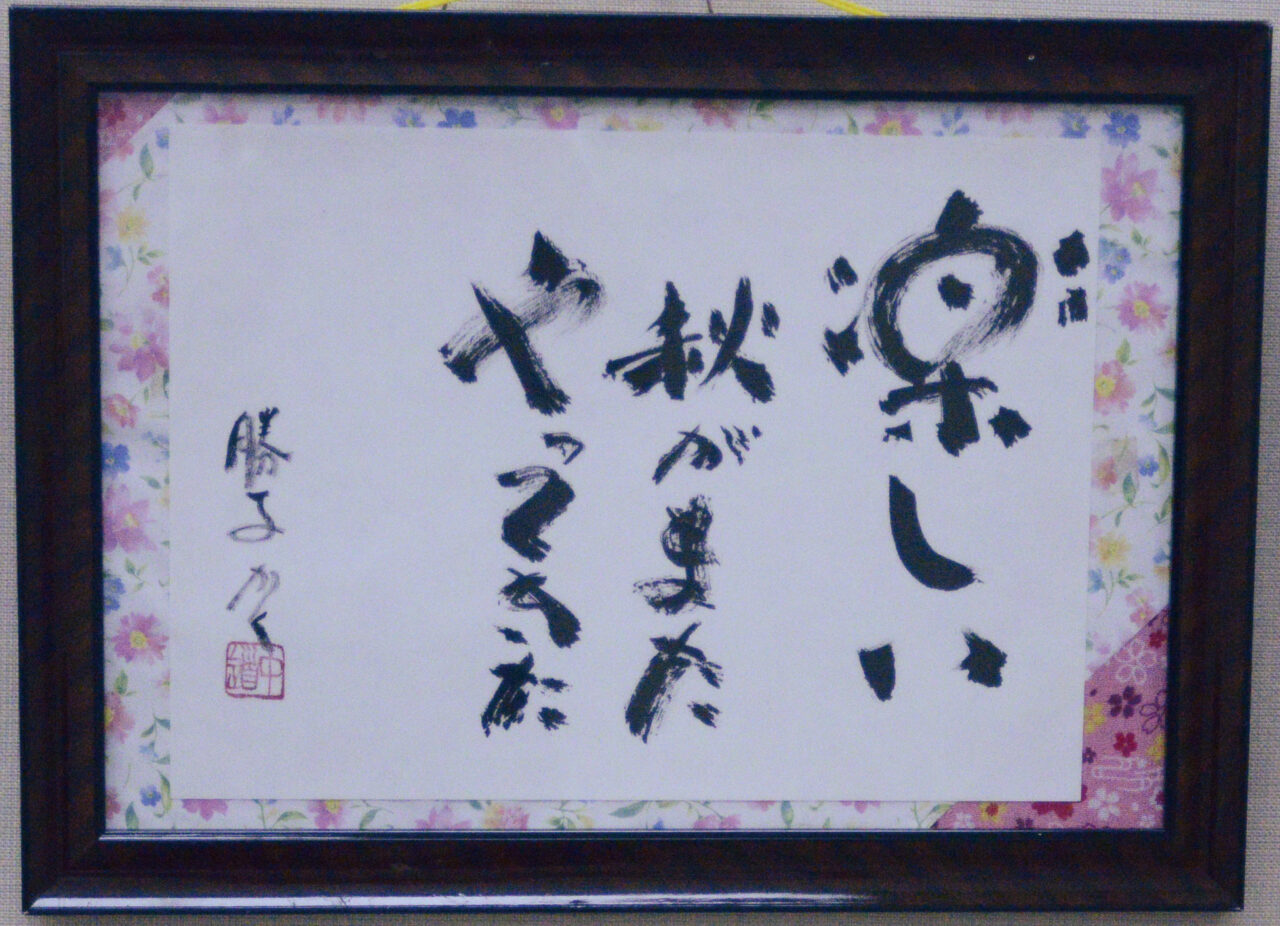 楽しい
秋がまた
やってきた
勝子かく
中道